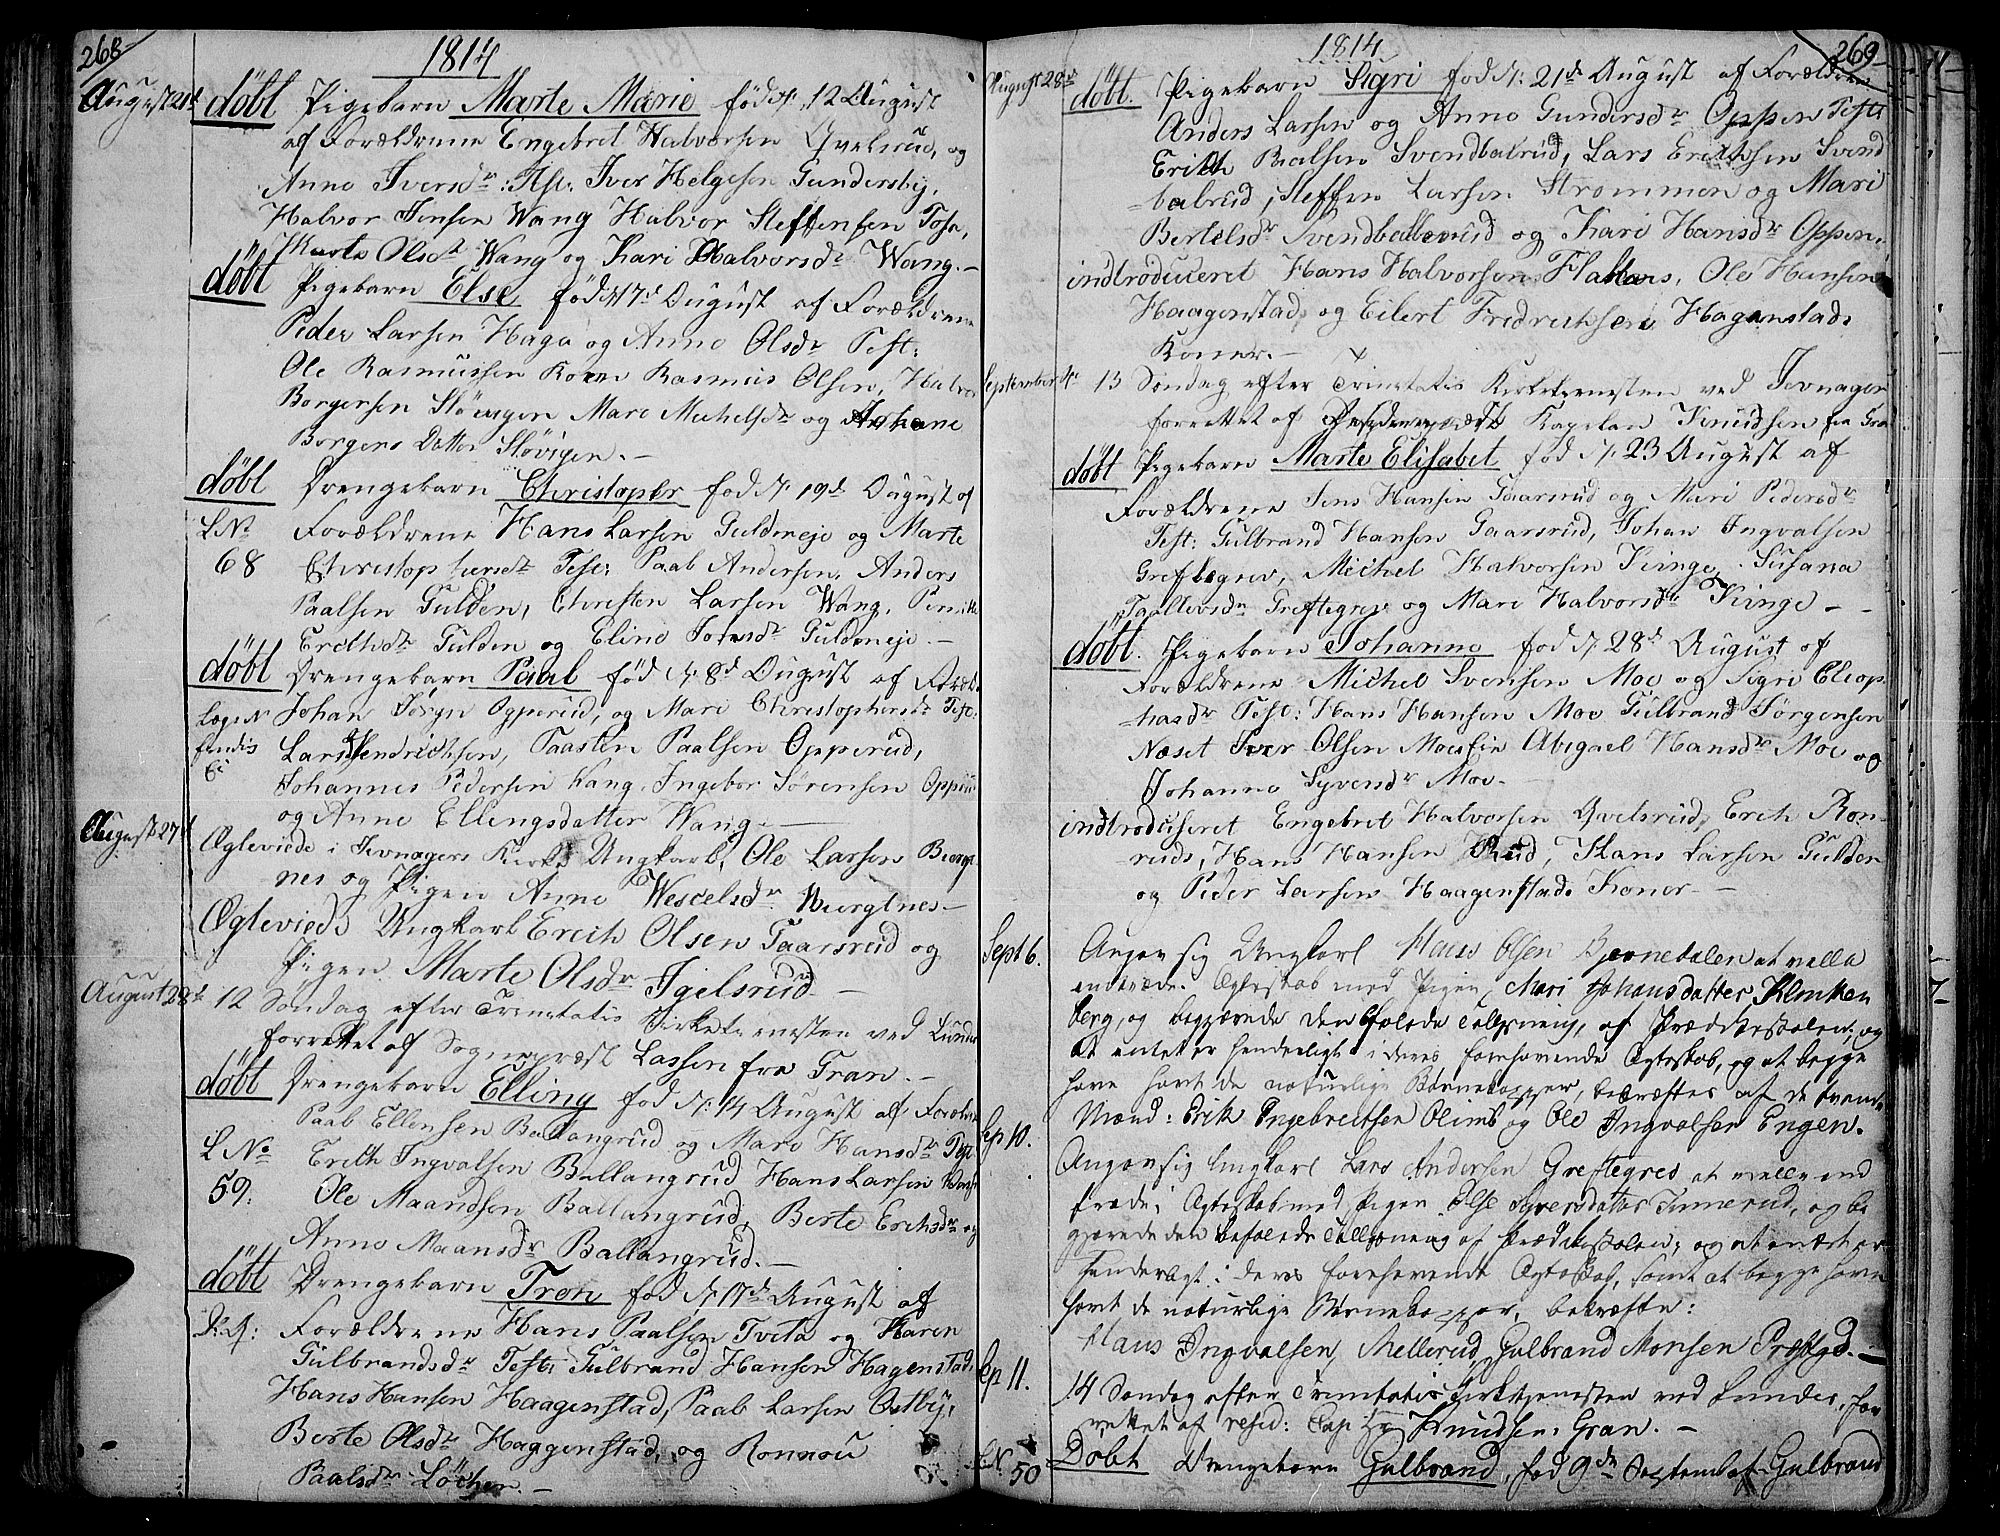 268
1814
August 21d döbt Pigebarn Marte Marie född d. 12 August
af Forældrene Engebret Halvorsen Qvelsrud, og
Anne Iversdr: Test: Iver Helgesen Gundersby,
Halvor Jensen Wang Halvor Steffensen Tosa,
Marte Olsdr Wang og Kari Halvorsdr Wang.-
döbt Pigebarn Else född d. 17d August af Forældrene
Peder Larsen Haga og Anne Olsdr Test:
Ole Rasmussen Rasmus Olsen, Halvor
Borgersen Slövigen Mari Michelsdr og Johane
Borgers Datter Slövigen.-
döbt Drengebarn Christopher fod d. 19d August af
L No Forældrene Hans Larsen Guldeneje og Marte
68 Christophersdr Test: Paal Andersen, Anders
Paalsen Gulden, Christen Larsen Wang,
Erichsdr Gulden og Eline Guldeneje.-
döbt Drengebarn Paal föd d. 8d August af Foræld.
Johan Opperud, og Mari Christophersdr Test:
Lars Hendrichsen, Taasten Paalsen Opperud,
Johannes Pedersen Wang, Ingebor Sörensen
og Anne Ellingsdatter Wang.-
August 27d Ægteviede i Jevnagers Kirke Ungkarl, Ole Larsen Bergt
nes og Pigen Anne Wescelsdr Bergtnes-
Ægtevied Ungkarl Erich Olsen Gaarsrud og
Pigen Marte Olsdr Igelsrud-
August 28d 12 Söndag efter Trinitatis Kirketienesten ved Lunder
forrettet af Sognepræst Lassen fra Gran.-
döbt Drengebarn Elling fod d. 14 August af Forældre
Paal Ellensen Ballangrud og Mari Hansdr Test
L No Erich Ingvalsen Ballangrud Hans Larsen
59. Ole Maandsen Ballangrud, Berte Erichsdr og
Anne Maansdr Ballangrud.-
döbt Drengebarn Tron fod d. 17de August af
Forældrene Hans Paalsen Tveta og Karen
Gulbrandsdr Test: Gulbrand Hansen Hagenstad,
Hans Hansen Haagenstad, Paal Larsen Östby,
Berte Olsdr Haggenstad, og Ronnou
Paalsdr Löchen.-
269
1814
August 28d döbt. Pigebarn Sigri fod d: 21de August af Forældrene
Anders Larsen og Anne Gundersdr Oppen Test
Erich Svendbalrud, Lars Erichsen Svend
balrud, Steffen Larsen Strommen og Mari
Bertelsdr Svendballerud og Kari Hansdr Oppen.
indtroduceret Hans Halvorsen Flatlars, Ole Hansen
Haagenstad, og Eilert Fredrichsen Hagenstads
Koner.-
September 4de 13 Söndag efter Trinitatis Kirketienesten ved Jevnager
forrettet af Kapelan Knudsen fra Gran
döbt Pigebarn Marte Elisabet fod d. 23 August af
Forældrene Jens Hansen Gaarsrud og Mari Pedersdr
Test: Gulbrand Hansen Gaarsrud, Johan Ingvalsen
Greftegrev, Michel Halvorsen Kinge, Susana
Taallevsdr Greftegrev og Mari Halvorsdr Kinge--
döbt. Pigebarn Johanne fod d. 28d August af
Forældrene Michel Svensen Moe og Sigri Eleop
hasdr Test: Hans Hansen Moe Gulbrand Jörgensen
Næset Iver Olsen Abigael Hansdr Moe og
Johanne Syversdr Moe-
indtroduseret Engebret Halvorsen Qvelsrud, Erich Ron-
ruds, Hans Hansen Rud, Hans Larsen Gulden
og Peder Larsen Haagenstads Koner-
Sept 6. Angav sig Ungkarl Hans Olsen Bjernedalen at ville
indtræde i Ægteskab med Pigen Mari Johansdatter Klinken
berg, og begjærede den befalede Tillysning, af Prædikestolen; og
at intet er henderligt i deres forehavende Ægteskab, og at begge
have havt de naturlige Börnekopper, bekræftes af de tvende
Mænd: Erik Ingebretsen Olimb og Ole Ingvalsen Engen.
Sep 10. Angav sig Ungkarl Lars Andersen Greftegrev at ville ind
træde i Ægteskab med Pigen Else Syversdatter Timerud, og be
gjærede den befalede Tillysning af Prædikestolen; og at intet er
henderligt i deres forehavende Ægteskab, samt at begge have
havt de naturlige Börnekopper, bekræfte:
Hans Ingvalsen, Mellerud, Gulbrand Monsen Præstgd.-
Sep 11. 14 Söndag efter Trinitatis Kirketjenesten ved Lunder, for
rettet af resid: Cap: Hr Knudsen, Gran.-
L N. 50 Döbt Drengebarn Gulbrand, fod 9de Septemb af Gulbrand